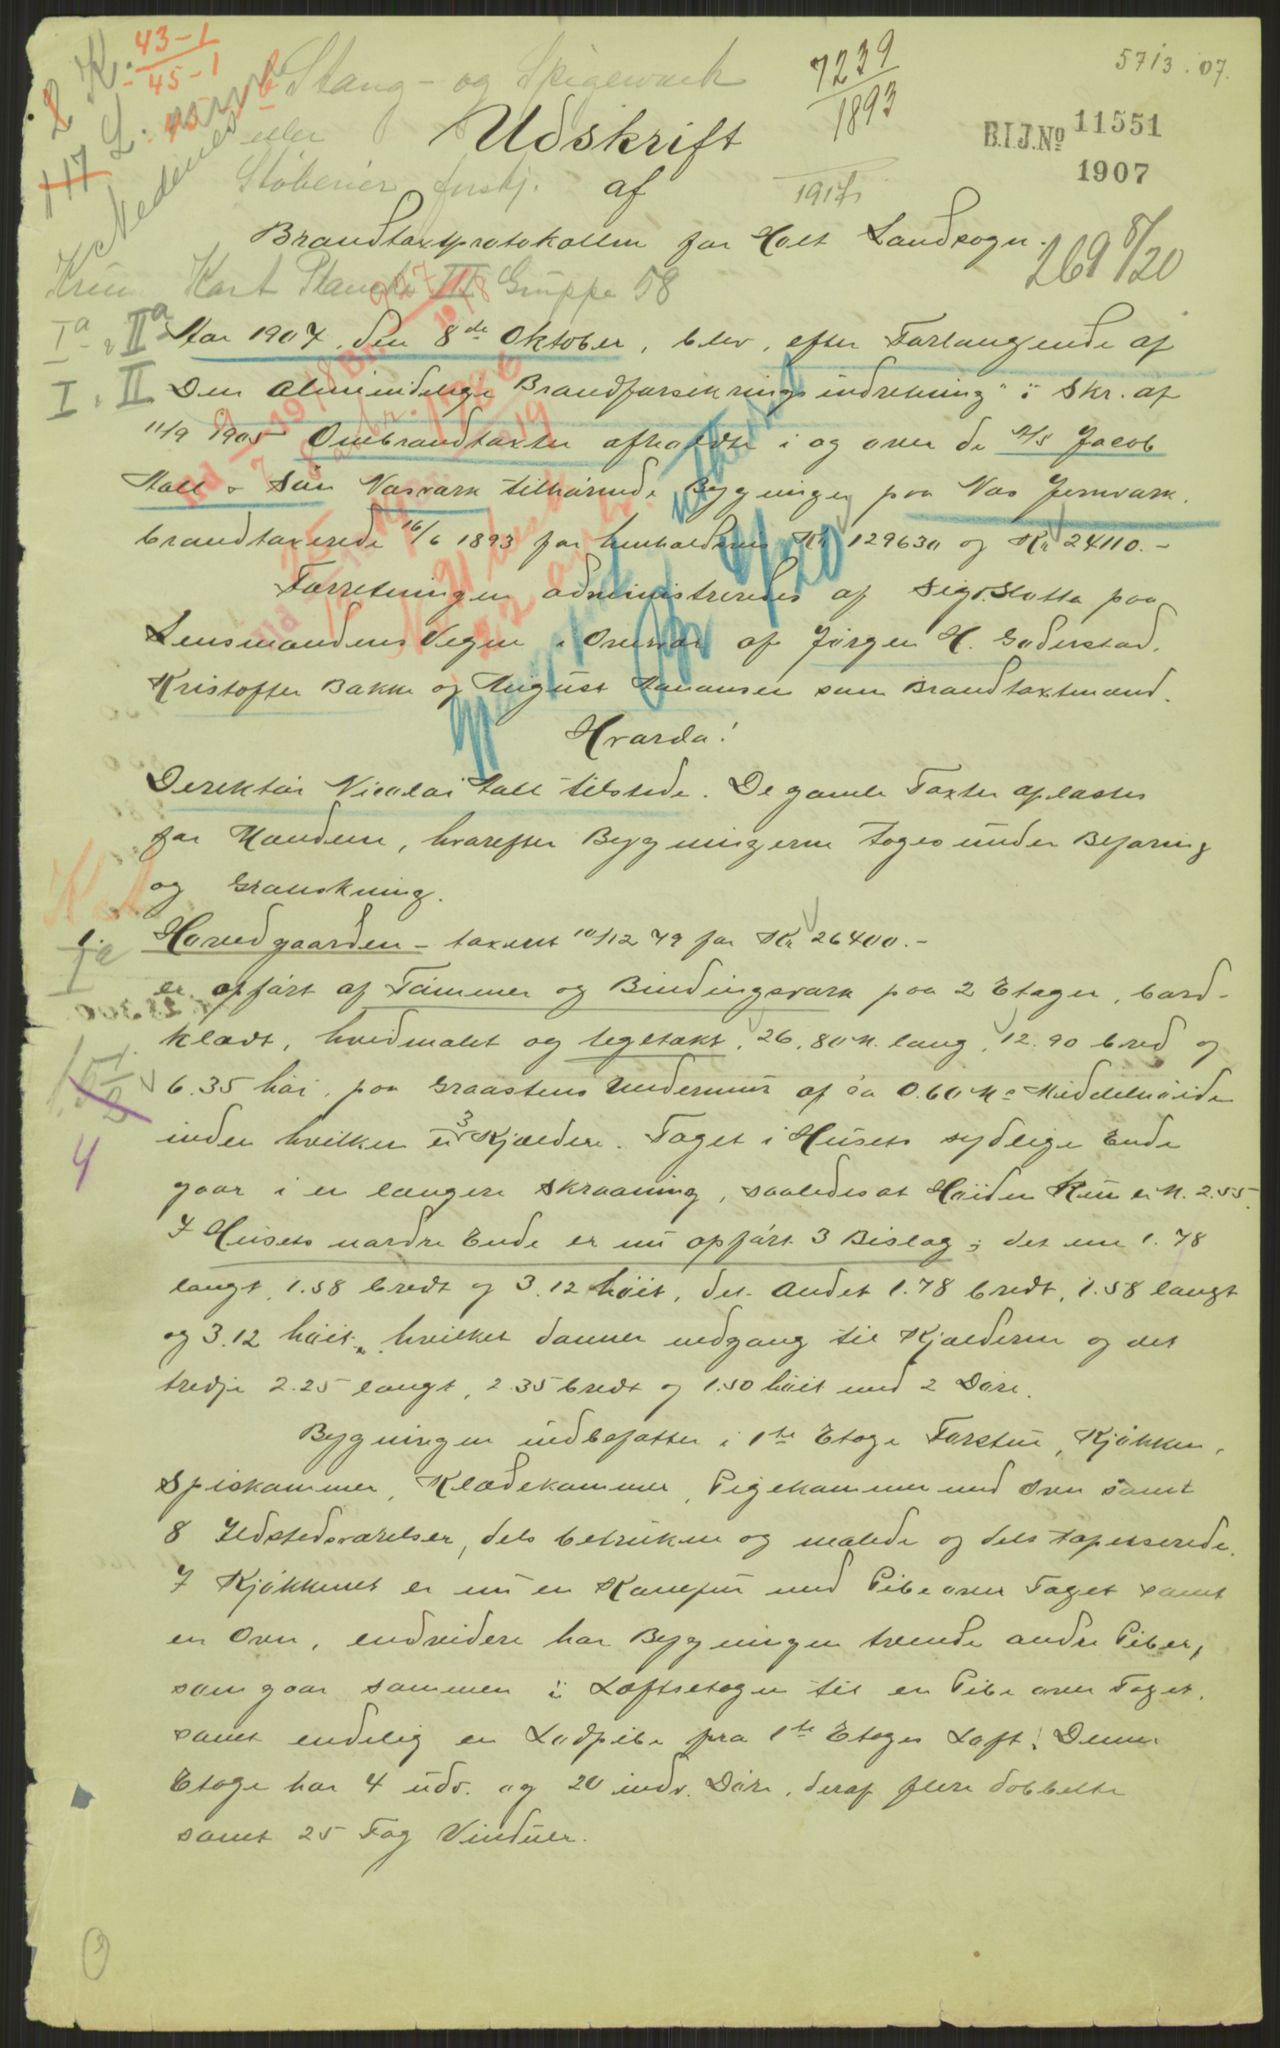 43-1
45-1
K.
L.
117
Nedenes
Stang- og Spigerverk
eller
Støberier forskj.
7239
1893
5713. 07.
B.I.J.No 11551
1907
Udskrift
af
Brandtaxtprotokollen for Holt Landsogn.
269 8/20
Kart Planche III Gruppe 58
Ia, IIa
Aar 1907, den 8de Oktober, blev, efter Forlangende af
I, II
Den almindelige Brandforsikringsindretning" i Skr. af
11/9 1905 Ombrandtaxter afholdt i og over de A/S Jacob
Aall & Søn Næsværk tilhørende Bygninger paa Næs Jernværk,
brandtaxerede 16/6 1893 for henholdsvis Kr 129630 og Kr 24110.-
Forretningen administreredes af Sigv. Slotta paa
Lensmandens Vegne i Overvær af Jørgen H. Goderstad,
Kristoffer Bakke og August Aanansen som Brandtaxtmænd.
Hvorda!
Direktør Nicolai Aall tilstede. De gamle Taxter oplæstes
for Mændene, hvorefter Bygningerne toges under Befaring
og Granskning.
1. Hovedgaarden - taxeret 10/12 79 for Kr 26400.-
Ia
er opført af Tømmer og Bindingsværk paa 2 Etager, bord-
klædt, hvidmalet og tegltækt, 26,80 M. lang, 12.90 bred og
6.35 høi, paa Graastens Undermur af ca 0.60 M. Middelhøide
inden hvilken er 3 Kjældere. Taget i Husets sydlige Ende
4
gaar i en længere Skraaning, saaledes at Høiden kun er M. 2.55.
I Husets nordre Ende er nu opført 3 Bislag; det ene 1.78
langt, 1.58 bredt og 3.12 høit, det andet 1.78 bredt, 1.58 langt
og 3.12 høit, hvilket danner nedgang til Kjælderen og det
tredje 2.25 langt, 2.35 bredt og 1.50 høit med 2 Døre.
Bygningen indbefatter i 1ste Etage Forstue, Kjøkken,
Spiskammer, Klædekammer, Pigekammer med Ovn samt
8 Ildstedsværelser, dels betrukne og malede og dels tapetserede.
I Kjøkkenet er nu en Komfur med Pibe over Taget samt
en Ovn, endvidere har Bygningen trende andre Piber,
som gaar sammen i Loftsetagen til en Pibe over Taget,
samt endelig en Lodpibe fra 1ste Etages Loft. Denne
Etage har 4 udv. og 20 indv. Døre, deraf flere dobbelte
samt 25 Fag Vinduer.